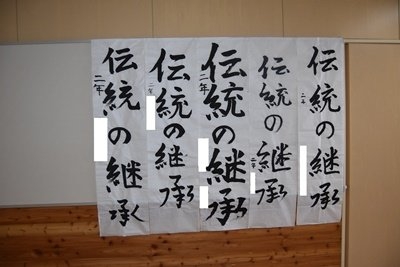 伝統の継承
二年
伝統の継承
二年
伝統の継承
二年
伝統の継承
二年
伝統の継承
二年